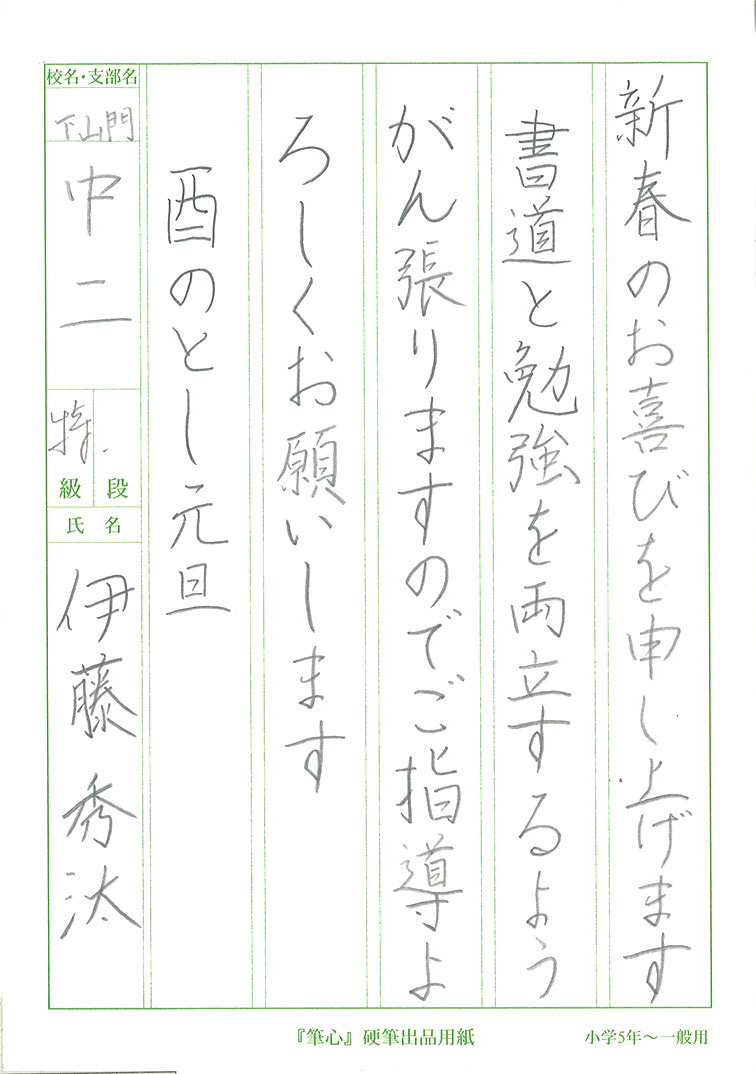 新春のお喜びを申し上げます
書道と勉強を両立するよう
がん張りますのでご指導よ
ろしくお願いします
酉のとし元旦
校名・支部名
下山門
中二
特
級 段
氏名
伊藤秀汰
『筆心』硬筆出品用紙
小学5年〜一般用